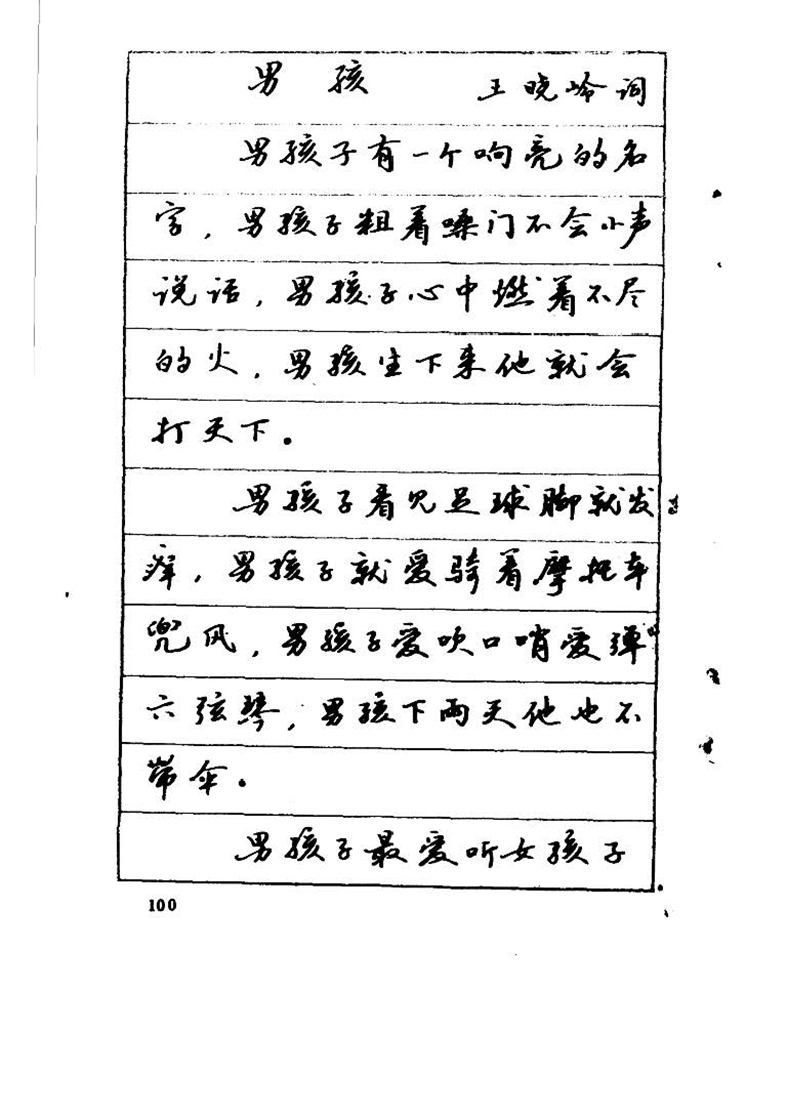 男孩 王晓岭词
男孩子有一个响亮的名
字，男孩子粗着嗓门不会小声
说话，男孩子心中燃着不尽
的火，男孩生下来他就会
打天下。
男孩子看见足球脚就发
痒，男孩子就爱骑着摩托车
兜风，男孩子爱吹口哨爱弹
六弦琴，男孩下雨天他也不
带伞。
男孩子最爱听女孩子
100